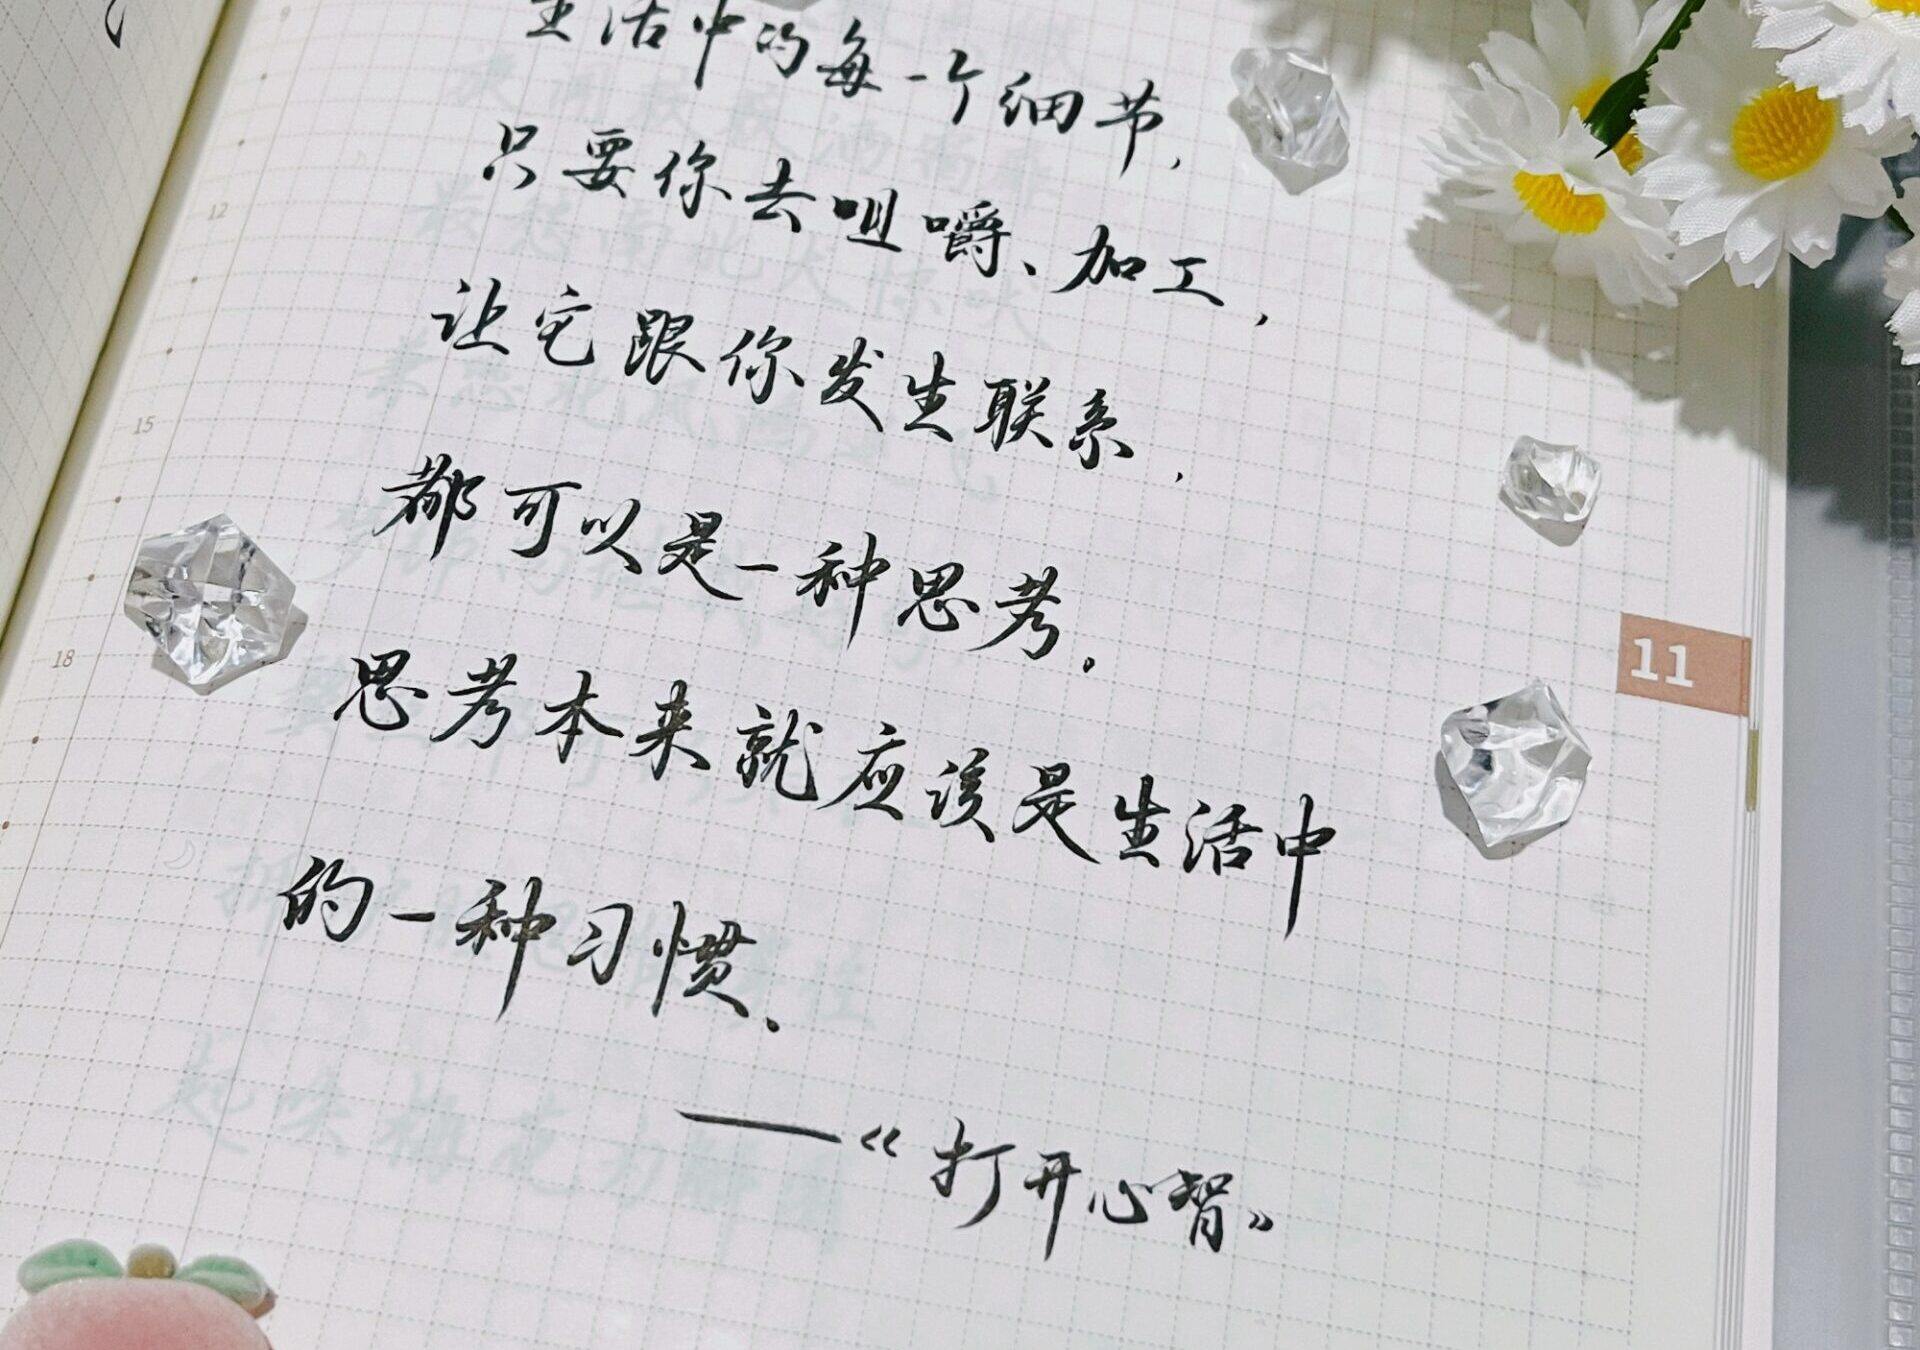 生活中的每一个细节,
只要你去咀嚼、加工,
让它跟你发生联系,
都可以是一种思考.
思考本来就应该是生活中
的一种习惯.
——《打开心智》
12
15
18
11